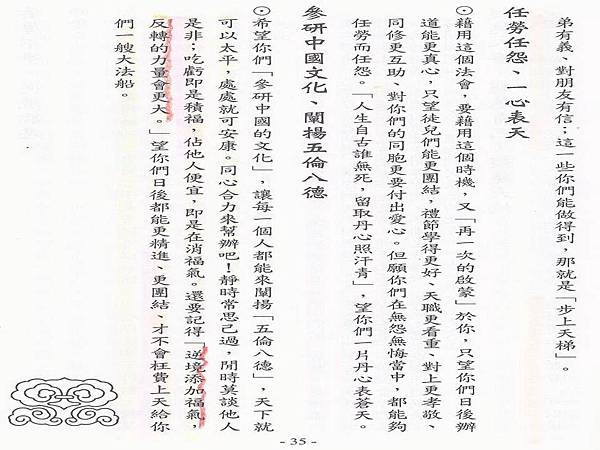 弟有義、對朋友有信;這一些你們能做得到,那就是「步上天梯」。
任勞任怨、一心表天
⊙藉用這個法會,要藉用這個時機,又「再一次的啟蒙」於你,只望你們日後辦
道能更真心,只望徒兒們能更團結,禮節學得更好、天職更看重、對上更孝敬、
同修更互助、對你們的同胞更要付出愛心。但願你們在無怨無悔當中,都能夠
任勞而任怨。「人生自古誰無死,留取丹心照汗青」,望你們一片丹心表蒼天。
參研中國文化、闡揚五倫八德
⊙希望你們「參研中國的文化」,讓每一個人都能來闡揚「五倫八德」,天下就
可以太平,處處就可安康。同心合力來幫辦吧!靜時常思己過,閒時莫談他人
是非;吃虧即是積福,佔他人便宜,即是在消福氣。還要記得「逆境添加福氣,
反轉的力量會更大。」望你們日後都能更精進、更團結、才不會枉費上天給你
們一艘大法船。
- 35 -